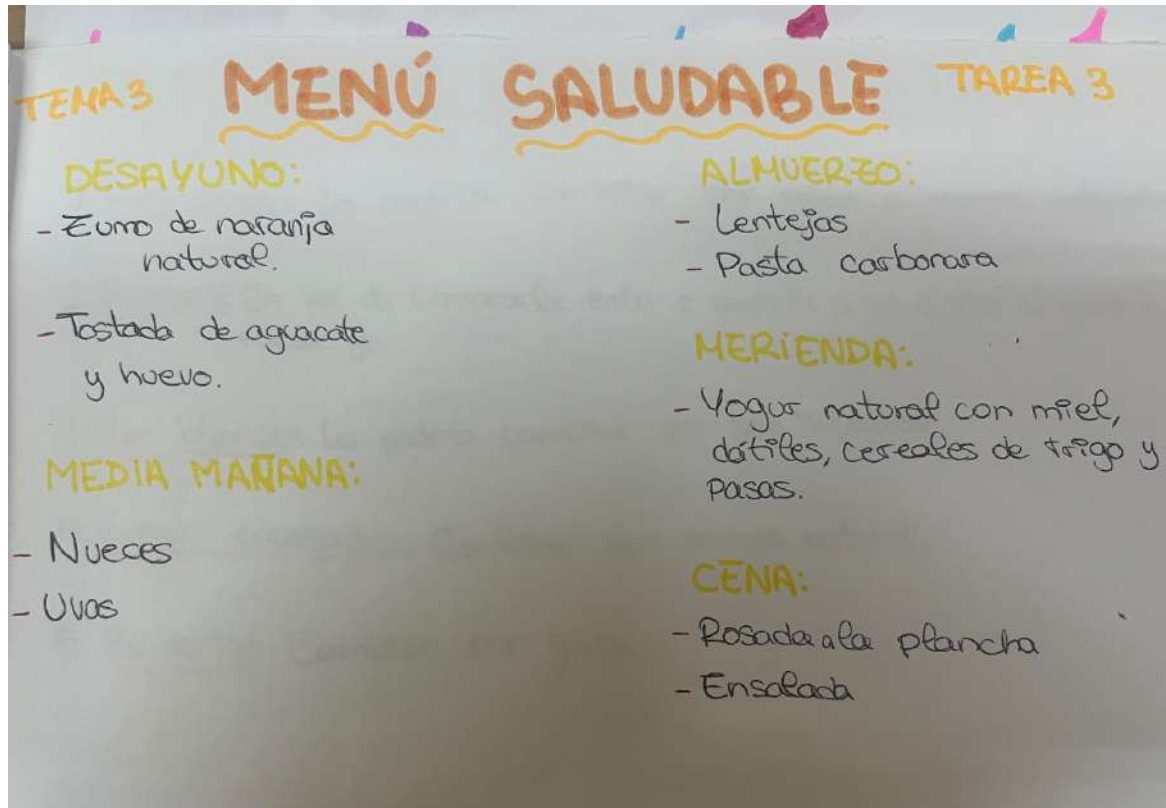 TEMA 3 MENÚ SALUDABLE TAREA 3
DESAYUNO:
- Zumo de naranja
natural.
- Tostada de aguacate
y huevo.
MEDIA MAÑANA:
- Nueces
- Uvas
ALMUERZO:
- Lentejas
- Pasta carbonara
MERIENDA:
- Yogur natural con miel,
dátiles, cereales de trigo y
pasas.
CENA:
- Rosada a la plancha
- Ensalada